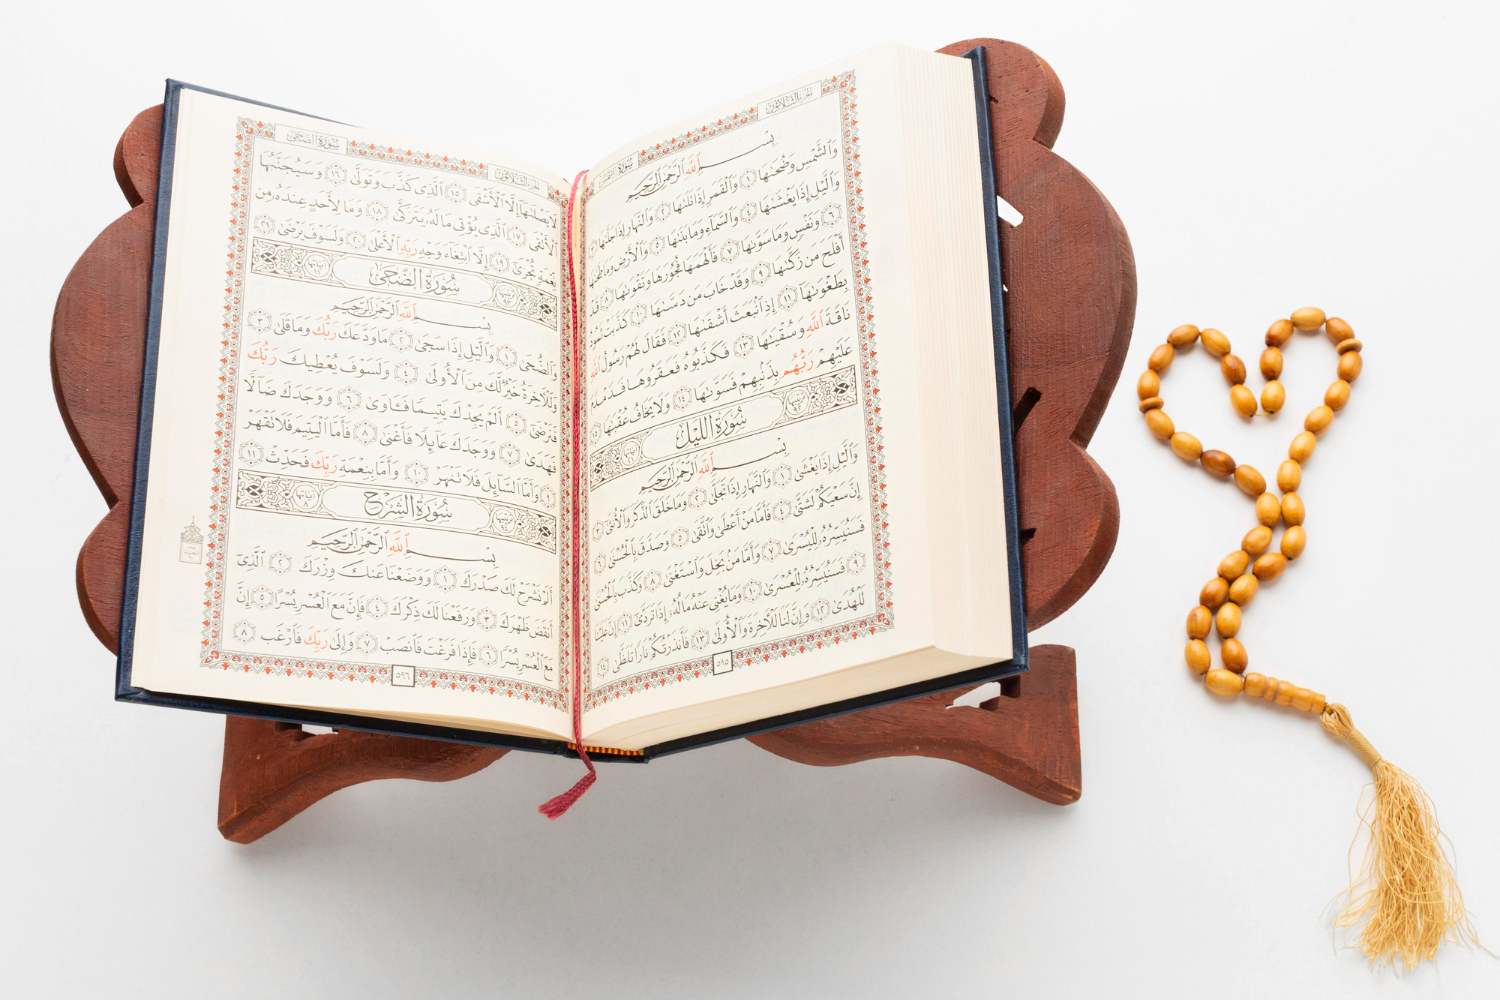 الجزء الثلاثون سورة الشمس
بِسْمِ اللَّهِ الرَّحْمَٰنِ الرَّحِيمِ
وَالشَّمْسِ وَضُحَىٰهَا ١ وَالْقَمَرِ إِذَا تَلَىٰهَا ٢ وَالنَّهَارِ إِذَا جَلَّىٰهَا ٣
وَالَّيْلِ إِذَا يَغْشَىٰهَا ٤ وَالسَّمَاءِ وَمَا بَنَىٰهَا ٥ وَالْأَرْضِ وَمَا طَحَىٰهَا
٦ وَنَفْسٍ وَمَا سَوَّىٰهَا ٧ فَأَلْهَمَهَا فُجُورَهَا وَتَقْوَىٰهَا ٨ قَدْ
أَفْلَحَ مَن زَكَّىٰهَا ٩ وَقَدْ خَابَ مَن دَسَّىٰهَا ١٠ كَذَّبَتْ ثَمُودُ
بِطَغْوَىٰهَا ١١ إِذِ انبَعَثَ أَشْقَىٰهَا ١٢ فَقَالَ لَهُمْ رَسُولُ اللَّهِ
نَاقَةَ اللَّهِ وَسُقْيَٰهَا ١٣ فَكَذَّبُوهُ فَعَقَرُوهَا فَدَمْدَمَ
عَلَيْهِمْ رَبُّهُم بِذَنبِهِمْ فَسَوَّىٰهَا ١٤ وَلَا يَخَافُ عُقْبَٰهَا ١٥
سُورَةُ اللَّيْلِ
بِسْمِ اللَّهِ الرَّحْمَٰنِ الرَّحِيمِ
وَالَّيْلِ إِذَا يَغْشَىٰ ١ وَالنَّهَارِ إِذَا تَجَلَّىٰ ٢ وَمَا خَلَقَ الذَّكَرَ وَالْأُنثَىٰ ٣
إِنَّ سَعْيَكُمْ لَشَتَّىٰ ٤ فَأَمَّا مَنْ أَعْطَىٰ وَاتَّقَىٰ ٥ وَصَدَّقَ بِالْحُسْنَىٰ ٦
فَسَنُيَسِّرُهُ لِلْيُسْرَىٰ ٧ وَأَمَّا مَن بَخِلَ وَاسْتَغْنَىٰ ٨ وَكَذَّبَ بِالْحُسْنَىٰ
٩ فَسَنُيَسِّرُهُ لِلْعُسْرَىٰ ١٠ وَمَا يُغْنِي عَنْهُ مَالُهُ إِذَا تَرَدَّىٰ ١١ إِنَّ عَلَيْنَا
لَلْهُدَىٰ ١٢ وَإِنَّ لَنَا لَلْآخِرَةَ وَالْأُولَىٰ ١٣ فَأَنذَرْتُكُمْ نَارًا تَلَظَّىٰ ١٤
٥٩٥
الجزء الثلاثون سورة الضحى
لَا يَصْلَىٰهَا إِلَّا الْأَشْقَى ١٥ الَّذِي كَذَّبَ وَتَوَلَّىٰ ١٦ وَسَيُجَنَّبُهَا
الْأَتْقَى ١٧ الَّذِي يُؤْتِي مَالَهُ يَتَزَكَّىٰ ١٨ وَمَا لِأَحَدٍ عِندَهُ مِن
نِّعْمَةٍ تُجْزَىٰ ١٩ إِلَّا ابْتِغَاءَ وَجْهِ رَبِّهِ الْأَعْلَىٰ ٢٠ وَلَسَوْفَ يَرْضَىٰ ٢١
سُورَةُ الضُّحَىٰ
بِسْمِ اللَّهِ الرَّحْمَٰنِ الرَّحِيمِ
وَالضُّحَىٰ ١ وَالَّيْلِ إِذَا سَجَىٰ ٢ مَا وَدَّعَكَ رَبُّكَ وَمَا قَلَىٰ ٣
وَلَلْآخِرَةُ خَيْرٌ لَّكَ مِنَ الْأُولَىٰ ٤ وَلَسَوْفَ يُعْطِيكَ رَبُّكَ
فَتَرْضَىٰ ٥ أَلَمْ يَجِدْكَ يَتِيمًا فَـَٔاوَىٰ ٦ وَوَجَدَكَ ضَالًّا
فَهَدَىٰ ٧ وَوَجَدَكَ عَائِلًا فَأَغْنَىٰ ٨ فَأَمَّا الْيَتِيمَ فَلَا تَقْهَرْ
٩ وَأَمَّا السَّائِلَ فَلَا تَنْهَرْ ١٠ وَأَمَّا بِنِعْمَةِ رَبِّكَ فَحَدِّثْ ١١
سُورَةُ الشَّرْحِ
بِسْمِ اللَّهِ الرَّحْمَٰنِ الرَّحِيمِ
أَلَمْ نَشْرَحْ لَكَ صَدْرَكَ ١ وَوَضَعْنَا عَنكَ وِزْرَكَ ٢ الَّذِي
أَنقَضَ ظَهْرَكَ ٣ وَرَفَعْنَا لَكَ ذِكْرَكَ ٤ فَإِنَّ مَعَ الْعُسْرِ يُسْرًا ٥ إِنَّ
مَعَ الْعُسْرِ يُسْرًا ٦ فَإِذَا فَرَغْتَ فَانصَبْ ٧ وَإِلَىٰ رَبِّكَ فَارْغَب ٨
٥٩٦